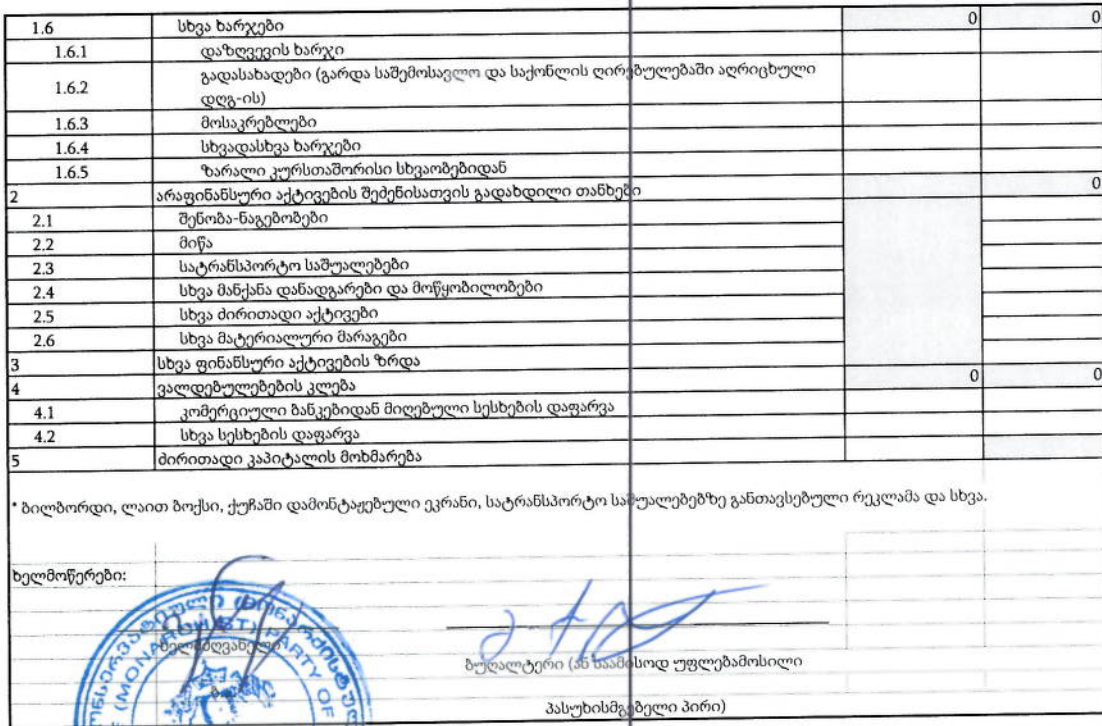 1.6 სხვა ხარჯები 0 0
1.6.1 დაზღვევის ხარჯი
1.6.2 გადასახადები (გარდა საშემოსავლო და საქონლის ღირებულებაში აღრიცხული
დღგ-ის)
1.6.3 მოსაკრებლები
1.6.4 სხვადასხვა ხარჯები
1.6.5 ზარალი კურსთაშორისი სხვაობებიდან
2 არაფინანსური აქტივების შეძენისათვის გადახდილი თანხები 0
2.1 შენობა-ნაგებობები
2.2 მიწა
2.3 სატრანსპორტო საშუალებები
2.4 სხვა მანქანა დანადგარები და მოწყობილობები
2.5 სხვა ძირითადი აქტივები
2.6 სხვა მატერიალური მარაგები
3 სხვა ფინანსური აქტივების ზრდა
4 ვალდებულებების კლება 0 0
4.1 კომერციული ბანკებიდან მიღებული სესხების დაფარვა
4.2 სხვა სესხების დაფარვა
5 ძირითადი კაპიტალის მოხმარება
* ბილბორდი, ლაით ბოქსი, ქუჩაში დამონტაჟებული ეკრანი, სატრანსპორტო საშუალებებზე განთავსებული რეკლამა და სხვა.
ხელმოწერები:
ხელმძღვანელი
PARTY OF
ბუღალტერი (ან საამისოდ უფლებამოსილი
პასუხისმგებელი პირი)